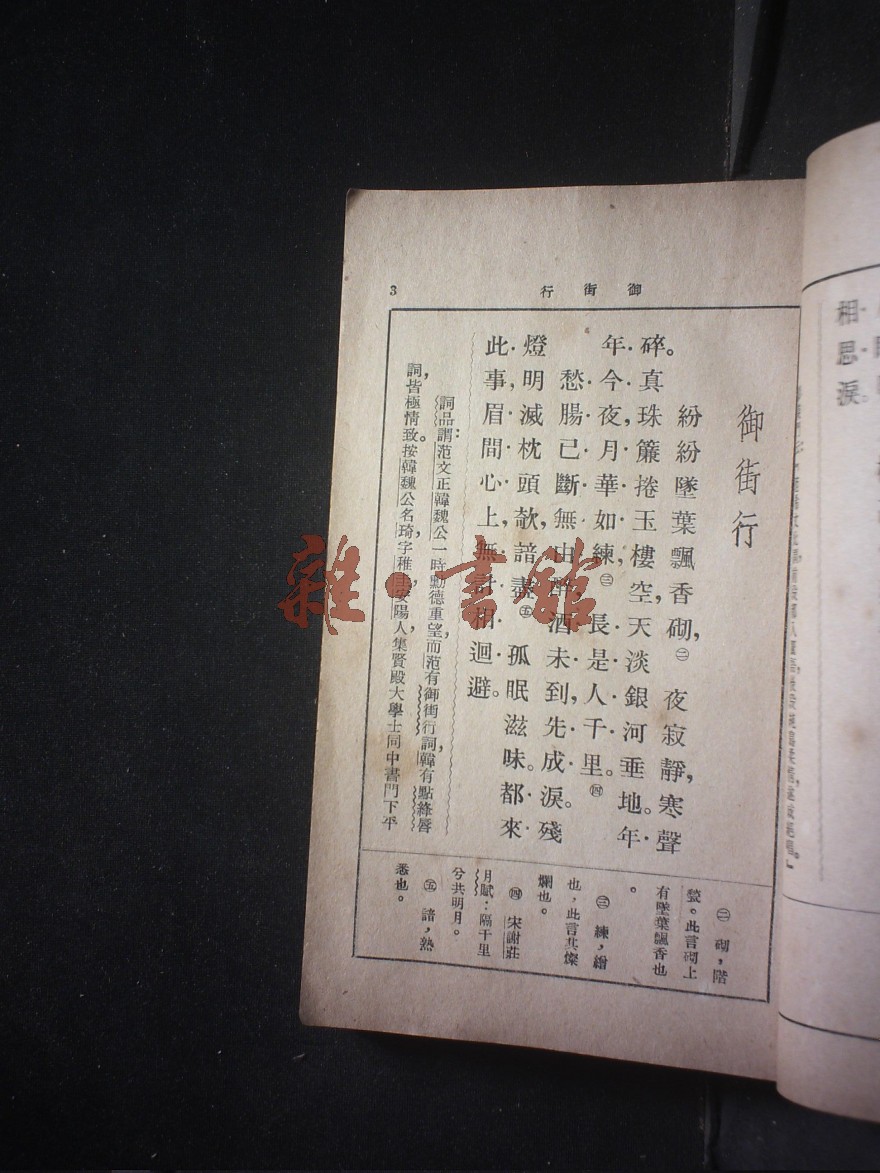 御街行
3
御街行
紛紛墜葉飄香砌,㊁夜寂靜,寒聲
碎。真珠簾捲玉樓空,天淡銀河垂地。年·
年·今·夜,月·華·如·練,㊂長·是·人·千·里。㊃
愁腸已斷無由醉,酒·未·到,先·成·淚。殘
燈明滅枕頭欹,諳盡㊄孤眠滋味。都·來·
此·事,眉·間·心·上,無·計·相·迴·避。
詞品:謂范文正韓魏公一時勳德重望,而范有御街行詞,韓有點絳唇
詞,皆極情致。按韓魏公名琦,字稚圭,安陽人,集賢殿大學士同中書門下平
㊁ 砌,階
甃。此言砌上
有墜葉飄香也
。
㊂ 練,繒
也,此言其燦
爛也。
㊃ 宋謝莊
月賦:隔千里
兮共明月。
㊄ 諳,熟
悉也。
相思淚。
雜·書館